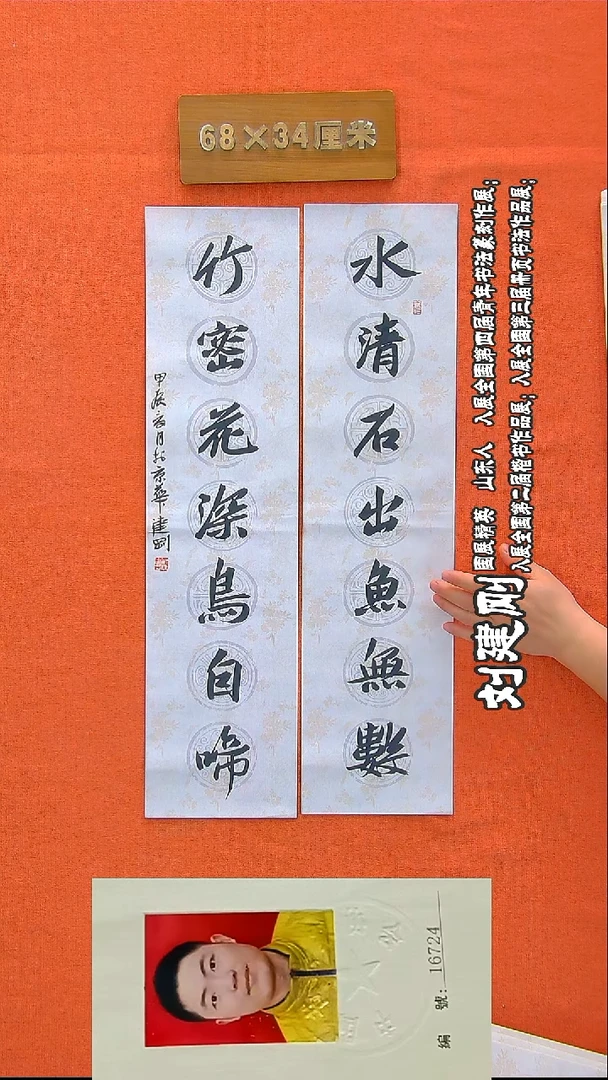 68×34厘米
水清石出魚無數
竹密花深鳥自啼
甲辰
月於京華建剛
刘建刚
国展精英 山东人 入展全国第四届青年书法篆刻作展；
入展全国第二届楷书作品展；入展全国第三届册页书法作品展；
編號：16724